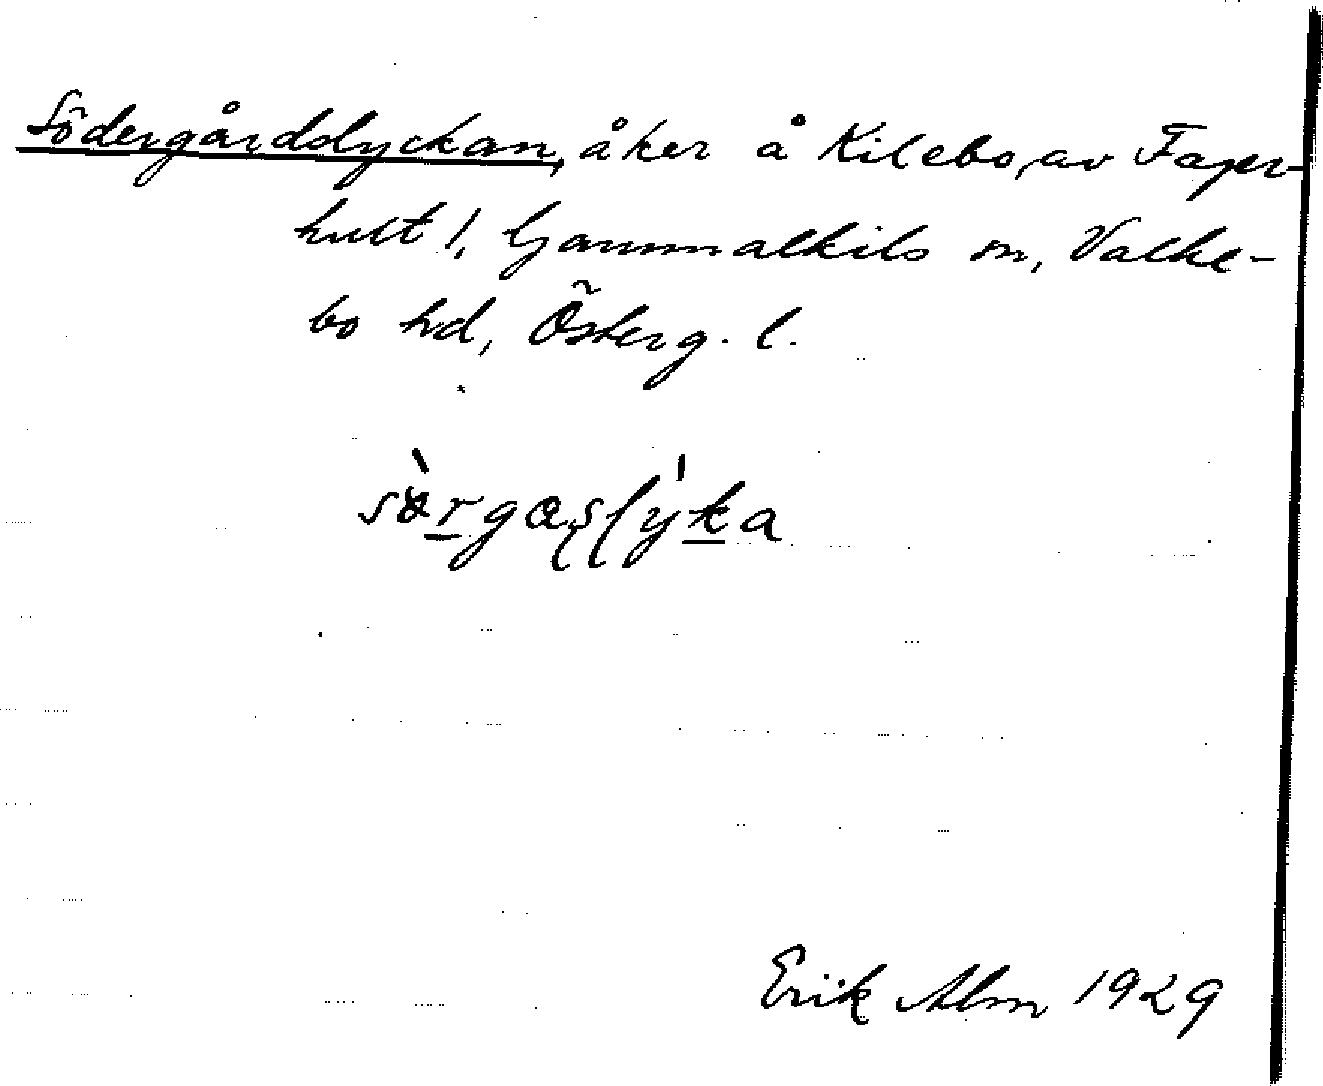 Södergårdslyckan, åker å Kilebo, av Fager-
hult 1, Gammalkils sn, Valke-
bo hd, Österg. l.
Erik Alm 1929